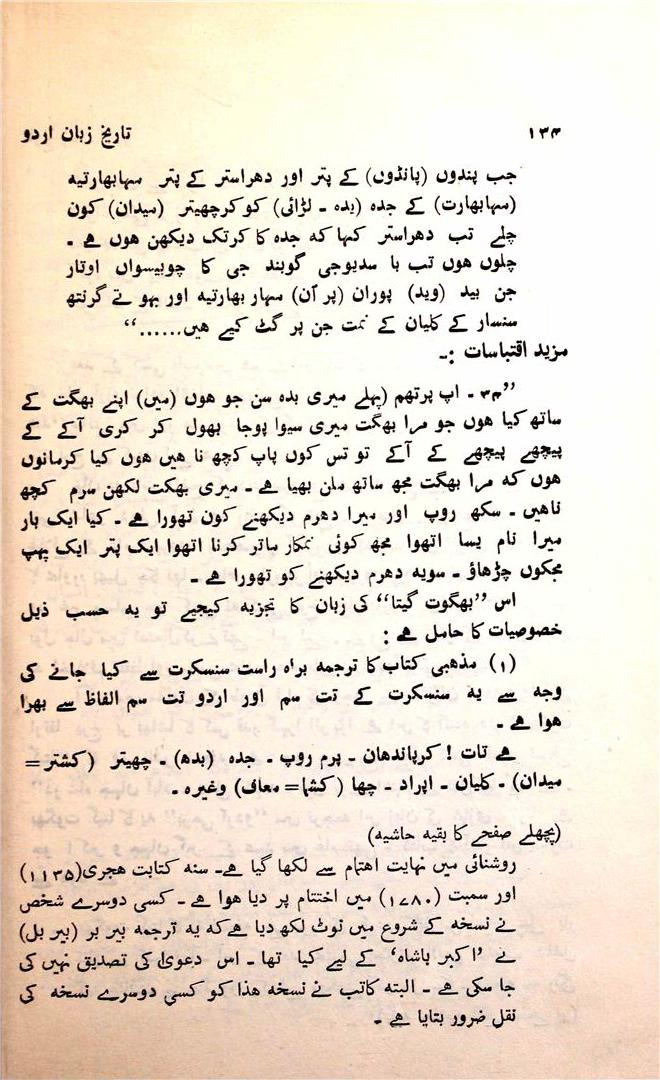 ۱۳۴ تاریخ زبان اردو
جب پندوں (پانڈوں) کے پتر اور دھراستر کے پتر مہابھارتیہ
(مہابھارت) کے جدہ (بدہ ـ لڑائی) کو کرچھیتر (میدان) کون
چلے تب دھراستر کہا کہ جدہ کا کرتک دیکھن ہوں ہے ـ
چلوں ہوں تب با سدیوجی گوبند جی کا چوبیسواں اوتار
جن بید (وید) پوران (پرآن) مہار بھارتیہ اور بہوتے گرنتھ
سنسار کے کلیان کے نمت جن پر گٹ کیے ہیں......“
مزید اقتباسات :ـ
”۳۴ ـ اپ پرتھم (پہلے میری بدہ سن جو ہوں (میں) اپنے بھگت کے
ساتھ کیا ہوں جو مرا بھگت میری سیوا پوجا بھول کر کری آکے کے
پیچھے پیچھے کے آکے تو تس کوں پاپ کچھ نا ہیں ہوں کیا کرمانوں
ہوں کہ مرا بھگت مجھ ساتھ ملن بھیا ہے ـ میری بھکت لکھن سرم کچھ
ناہیں ـ سکھ روپ اور میرا دھرم دیکھنے کون تھورا ہے ـ کیا ایک بار
میرا نام یسا اتھوا مجھ کوئی نمکار ماتر کرنا اتھوا ایک پتر ایک پہپ
مجکوں چڑھاؤ ـ سویہ دھرم دیکھنے کو تھورا ہے ـ
اس ”بھگوت گیتا“ کی زبان کا تجزیہ کیجیے تو یہ حسب ذیل
خصوصیات کا حامل ہے :
(۱) مذہبی کتاب کا ترجمہ براہ راست سنسکرت سے کیا جانے کی
وجہ سے یہ سنسکرت کے تت سم اور اردو تت سم الفاظ سے بھرا
ہوا ہے ـ
ہے تات ! کرپاندھان ـ پرم روپ ـ جدہ (بدھ) ـ چھیتر (کشتر =
میدان) ـ کلیان ـ اپراد ـ چھا (کشما = معاف) وغیرہ ـ
(پچھلے صفحے کا بقیہ حاشیہ)
روشنائی میں نہایت اہتمام سے لکھا گیا ہے ـ سنہ کتابت ہجری (۱۱۳۵)
اور سمبت (۱۷۸۰) میں اختتام پر دیا ہوا ہے ـ کسی دوسرے شخص
نے نسخہ کے شروع میں نوٹ لکھ دیا ہے کہ یہ ترجمہ بیر بر (بیر بل)
نے ’اکبر باشاہ‘ کے لیے کیا تھا ـ اس دعویٰ کی تصدیق نہیں کی
جا سکی ہے ـ البتہ کاتب نے نسخہ ہذا کو کسی دوسرے نسخہ کی
نقل ضرور بتایا ہے ـ